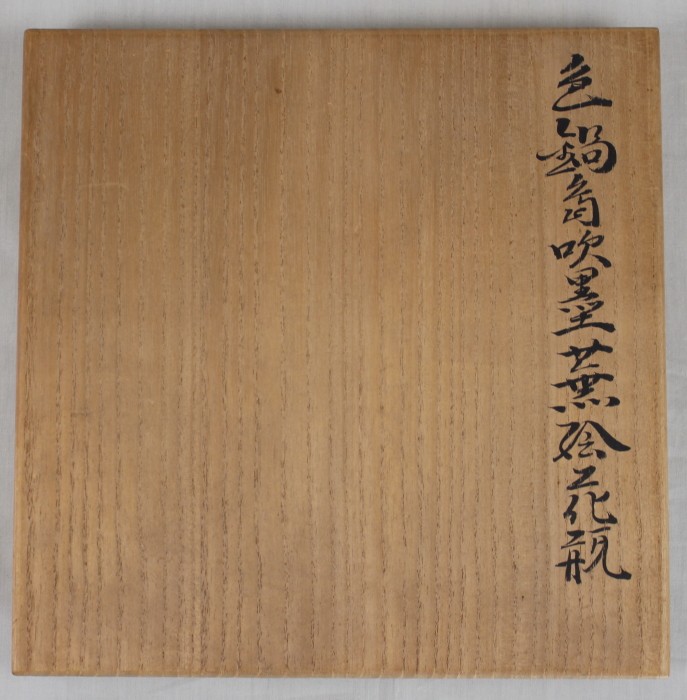 色鍋島吹墨蕪絵花瓶